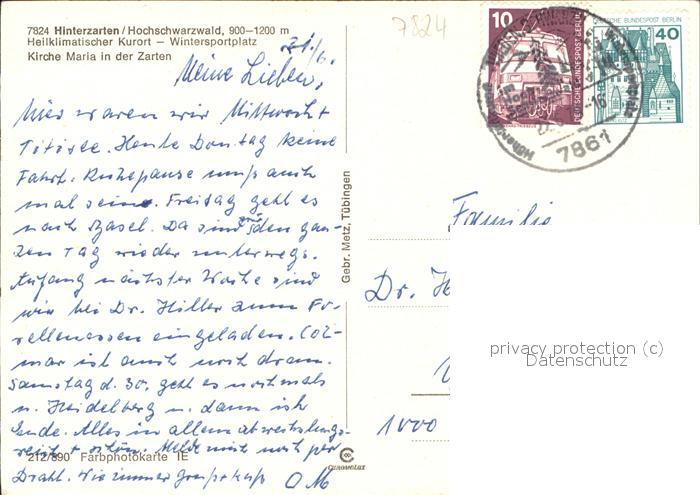 7824 Hinterzarten / Hochschwarzwald, 900–1200 m
Heilklimatischer Kurort – Wintersportplatz
Kirche Maria in der Zarten
7824
10
DEUTSCHE BUNDESPOST BERLIN
DEUTSCHE BUNDESPOST BERLIN
40
7861
Meine Lieben,
Hier waren wir Mittwoch +
Titisee. Heute Donstag keine
Fahrt. Ruhepause muß auch
mal sein. Freitag geht es
nach Basel. Da sind wir den gan-
zen Tag wieder unterwegs.
Anfang nächster Woche sind
wir bei Dr. Hiller zum Fo-
rellenessen eingeladen. Col-
mar ist auch noch dran.
Samstag d. 30. geht es nochmals
n. Heidelberg u. dann ist
Ende. Alles in allem abwechslungs-
reich + schön. Melde mich noch per
Draht. Wie immer Gruß + Kuß
O M
Gebr. Metz, Tübingen
Familie
Dr. H
1000
privacy protection (c)
Datenschutz
212/890 Farbphotokarte IE